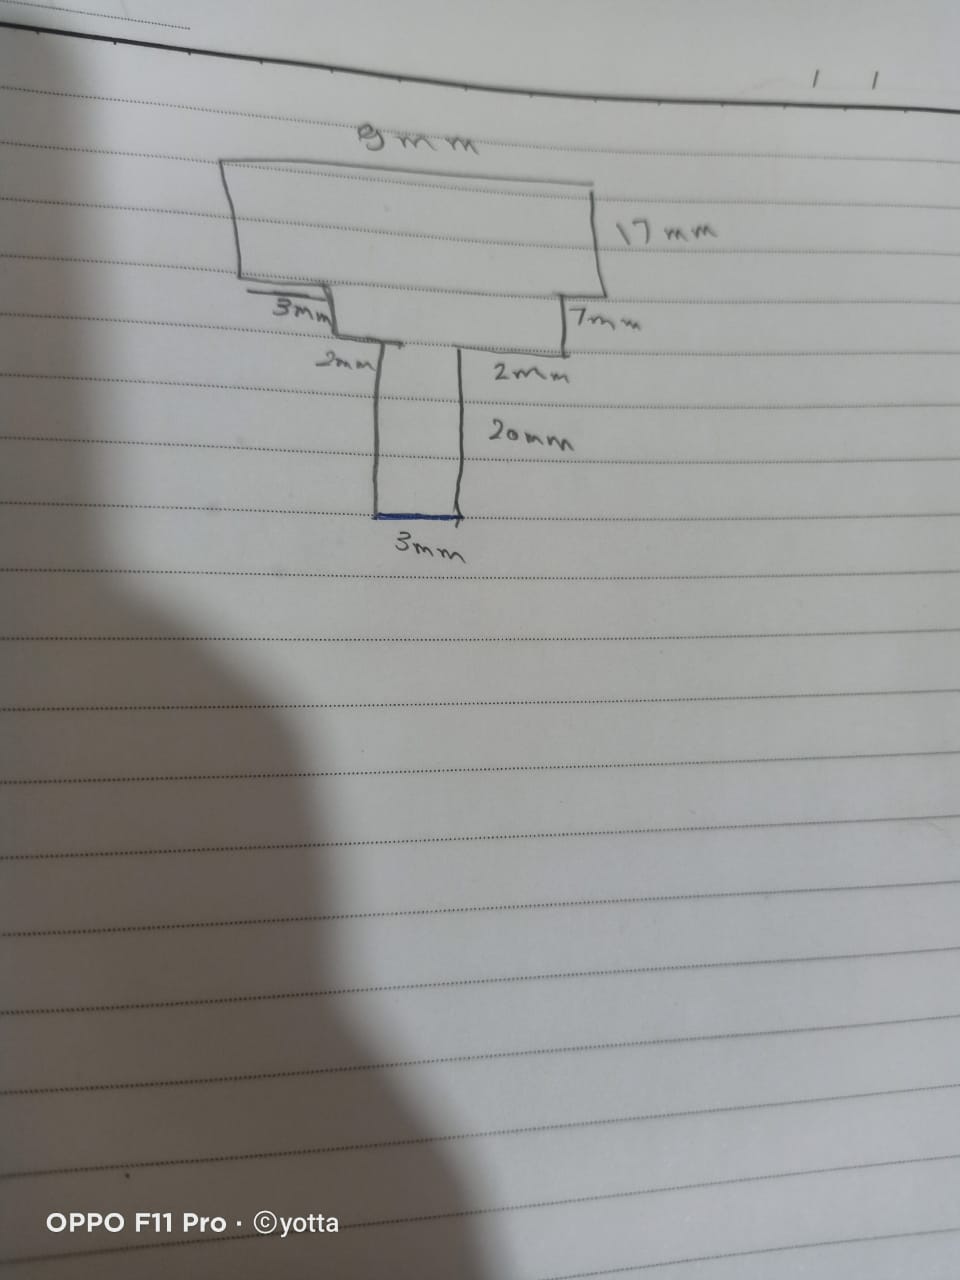 9mm
17mm
3mm
7mm
2mm
2mm
20mm
3mm
OPPO F11 Pro · ©yotta